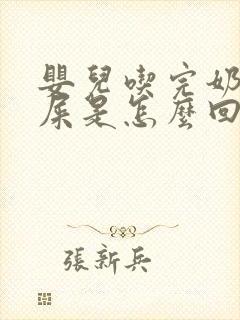 嬰兒喫完奶
屎是怎麼回
張新兵